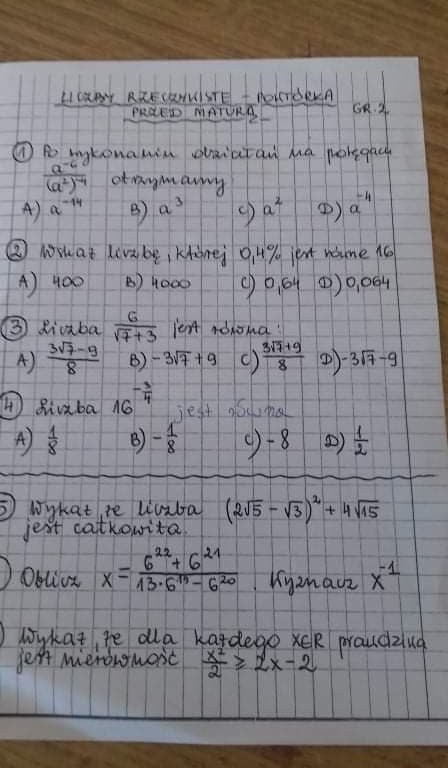 LICZBY RZECZYWISTE – POWTÓRKA
PRZED MATURĄ GR.2
① Po wykonaniu działań na potęgach
a⁻⁶/(a²)⁻⁴ otrzymamy:
A) a⁻¹⁴ B) a³ C) a² D) a⁻⁴
② Wskaż liczbę, której 0,4% jest równe 16
A) 400 B) 4000 C) 0,64 D) 0,064
③ Liczba 6/(√7+3) jest równa:
A) (3√7-9)/8 B) -3√7+9 C) (3√7+9)/8 D) -3√7-9
④ Liczba 16^(-3/4) jest równa
A) 1/8 B) -1/8 C) -8 D) 1/2
5) Wykaż, że liczba (2√5 - √3)² + 4√15
jest całkowita.
) Oblicz x = (6²² + 6²¹)/(13·6¹⁹ - 6²⁰). Wyznacz x⁻¹
) Wykaż, że dla każdego x∈R prawdziwa
jest nierówność x²/2 ≥ 2x-2